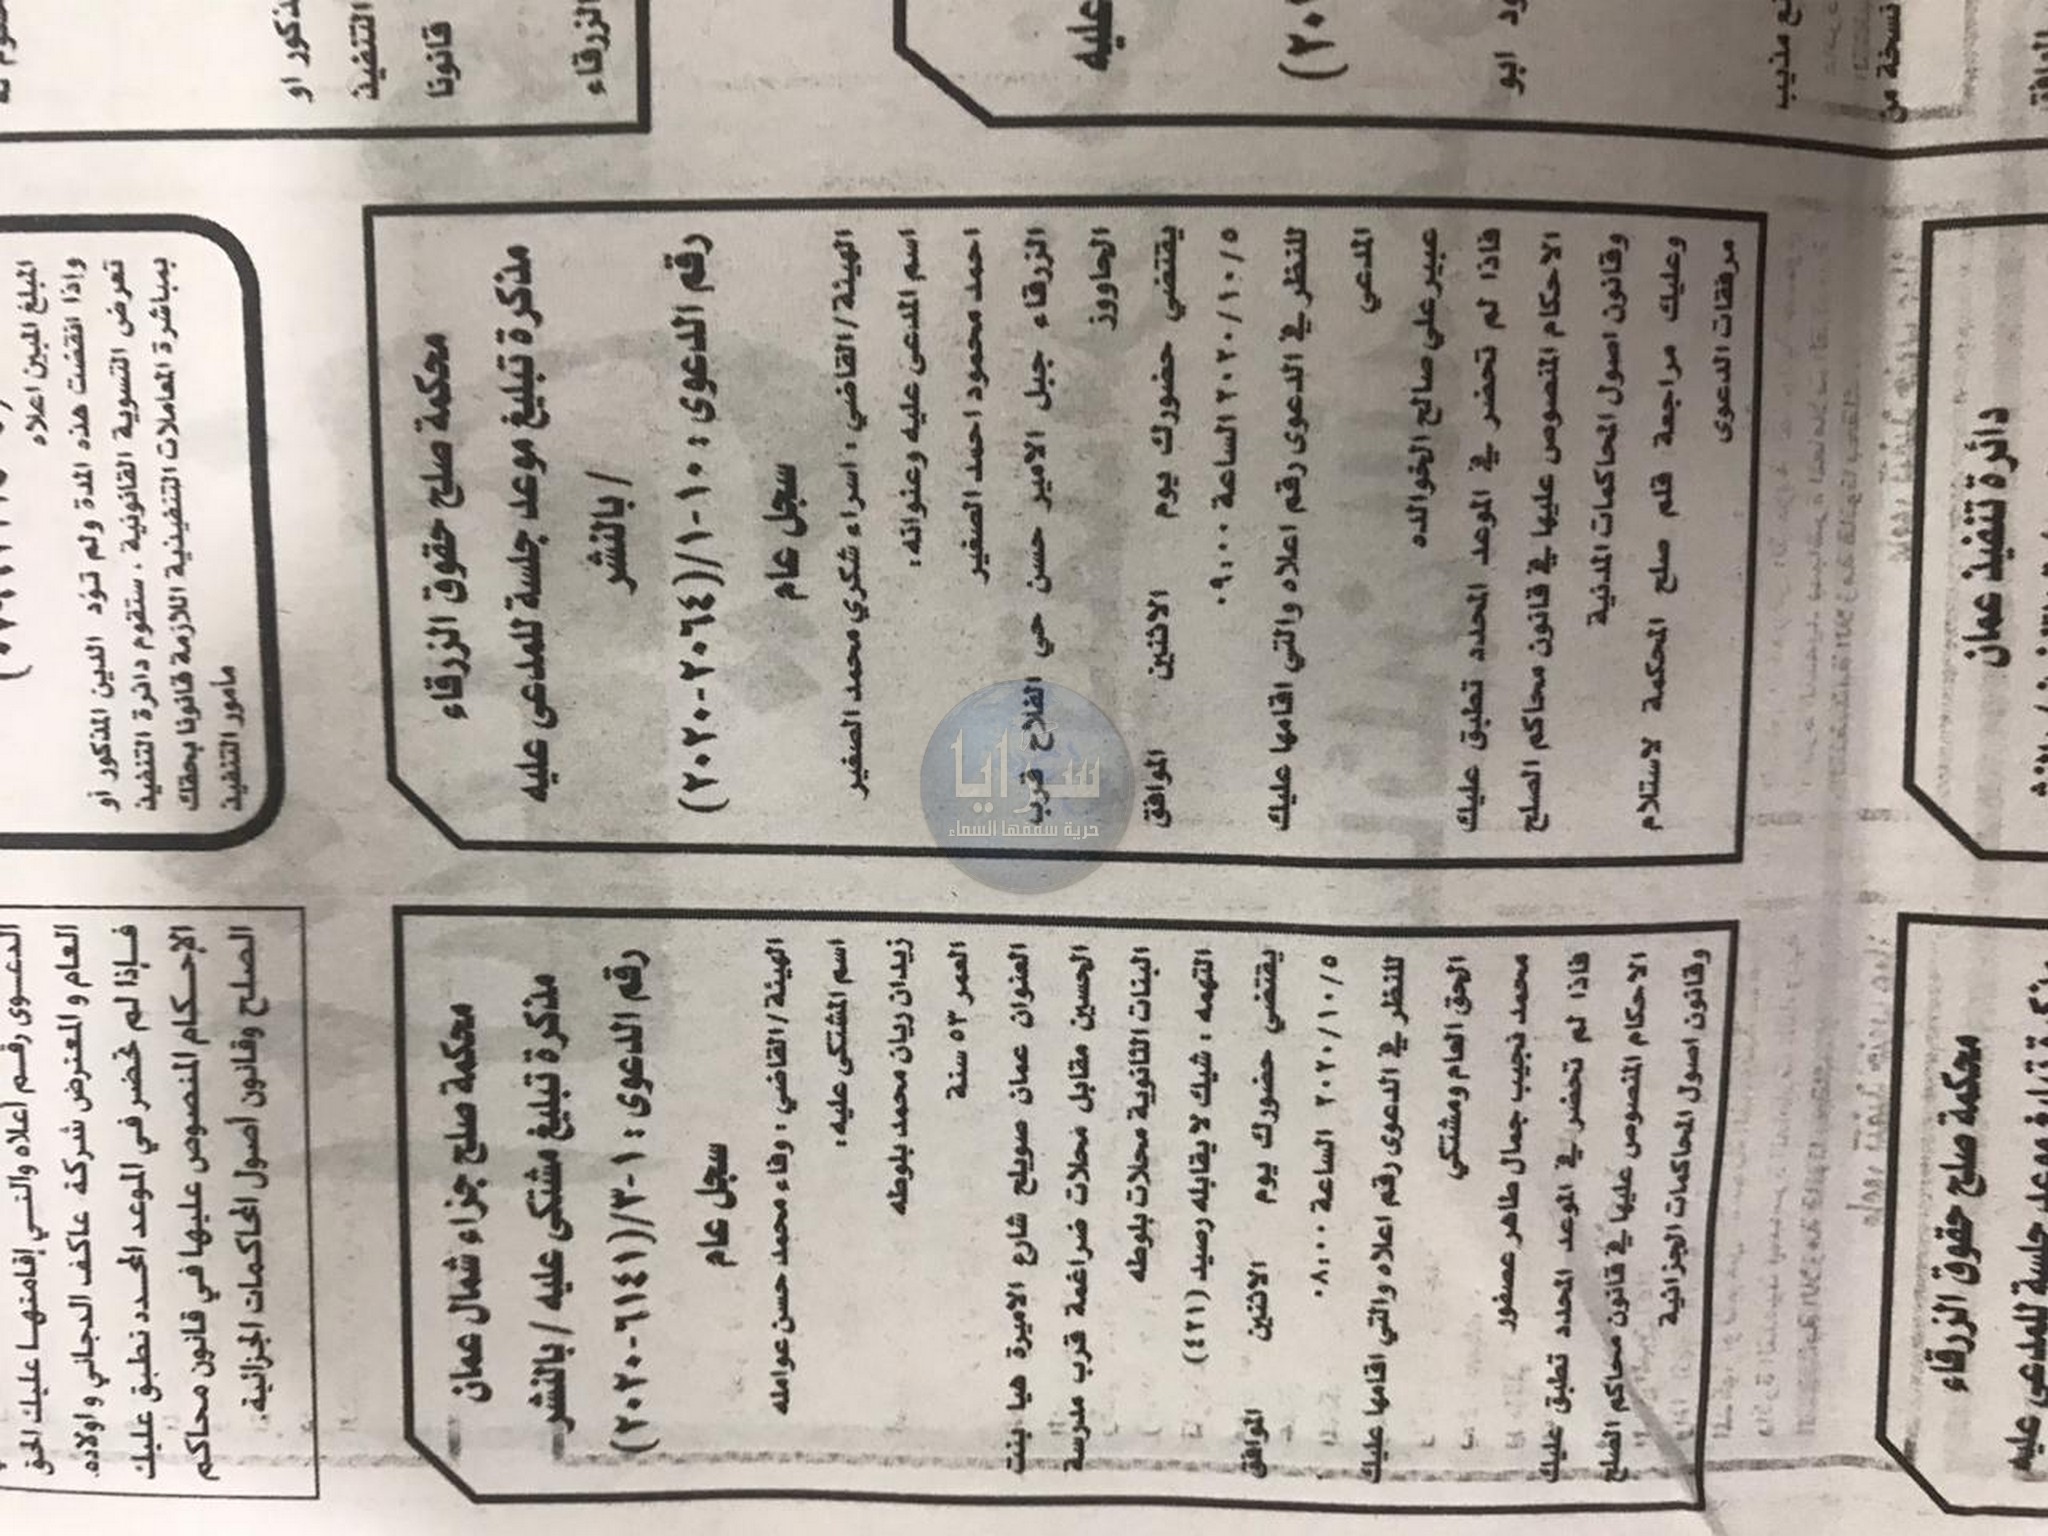 ذكور او
التنفيذ
قانونا
الزرقاء
عليه
ود ابو
نسخة من
المبلغ المبين اعلاه
واذا انقضت هذه المدة ولم تؤد الدين المذكور او
تعرض التسوية القانونية ، ستقوم دائرة التنفيذ
بمباشرة المعاملات التنفيذية اللازمة قانونا بحقك
مامور التنفيذ
محكمة صلح حقوق الزرقاء
مذكرة تبليغ موعد جلسة للمدعى عليه
/ بالنشر
رقم الدعوى : ١٠-١/(٢٠٦٤-٢٠٢٠)
سجل عام
الهيئة / القاضي : اسراء شكري محمد الصغير
اسم المدعى عليه وعنوانه :
احمد محمود احمد الصغير
الزرقاء جبل الامير حسن حي الفلاح قرب
الحاووز
يقتضي حضورك يوم الاثنين الموافق
٢٠٢٠/١٠/٥ الساعة ٠٩:٠٠
للنظر في الدعوى رقم اعلاه والتي اقامها عليك
المدعي
عبير علي صالح الخوالده
فاذا لم تحضر في الموعد المحدد تطبق عليك
الاحكام المنصوص عليها في قانون محاكم الصلح
وقانون اصول المحاكمات المدنية
وعليك مراجعة قلم صلح المحكمة لاستلام
مرفقات الدعوى
دائرة تنفيذ عمان
الدعوى رقم أعلاه والتي إقامتها عليك الحق
العام و المعترض شركة عاكف الدجاني و اولاده.
فإذا لم تحضر في الموعد المحدد تطبق عليك
الإحكام المنصوص عليها في قانون محاكم
الصلح وقانون أصول المحاكمات الجزائية.
محكمة صلح جزاء شمال عمان
مذكرة تبليغ مشتكى عليه / بالنشر
رقم الدعوى : ١-٣/(٦١٤١-٢٠٢٠)
سجل عام
الهيئة / القاضي : وفاء محمد حسن عوامله
اسم المشتكى عليه :
زيدان ريان محمد بلوطه
العمر ٥٣ سنة
العنوان عمان صويلح شارع الاميرة هيا بنت
الحسين مقابل محلات ضراغمة قرب مدرسة
البنات الثانوية محلات بلوطه
التهمه : شيك لا يقابله رصيد (٤٢١)
يقتضي حضورك يوم الاثنين الموافق
٢٠٢٠/١٠/٥ الساعة ٠٨:٠٠
للنظر في الدعوى رقم اعلاه والتي اقامها عليك
الحق العام ومشتكي
محمد نجيب جمال طاهر عصفور
فاذا لم تحضر في الموعد المحدد تطبق عليك
الاحكام المنصوص عليها في قانون محاكم الصلح
وقانون اصول المحاكمات الجزائية
محكمة صلح حقوق الزرقاء
جلسة للمدعى عليه
سرايا
حرية سقفها السماء